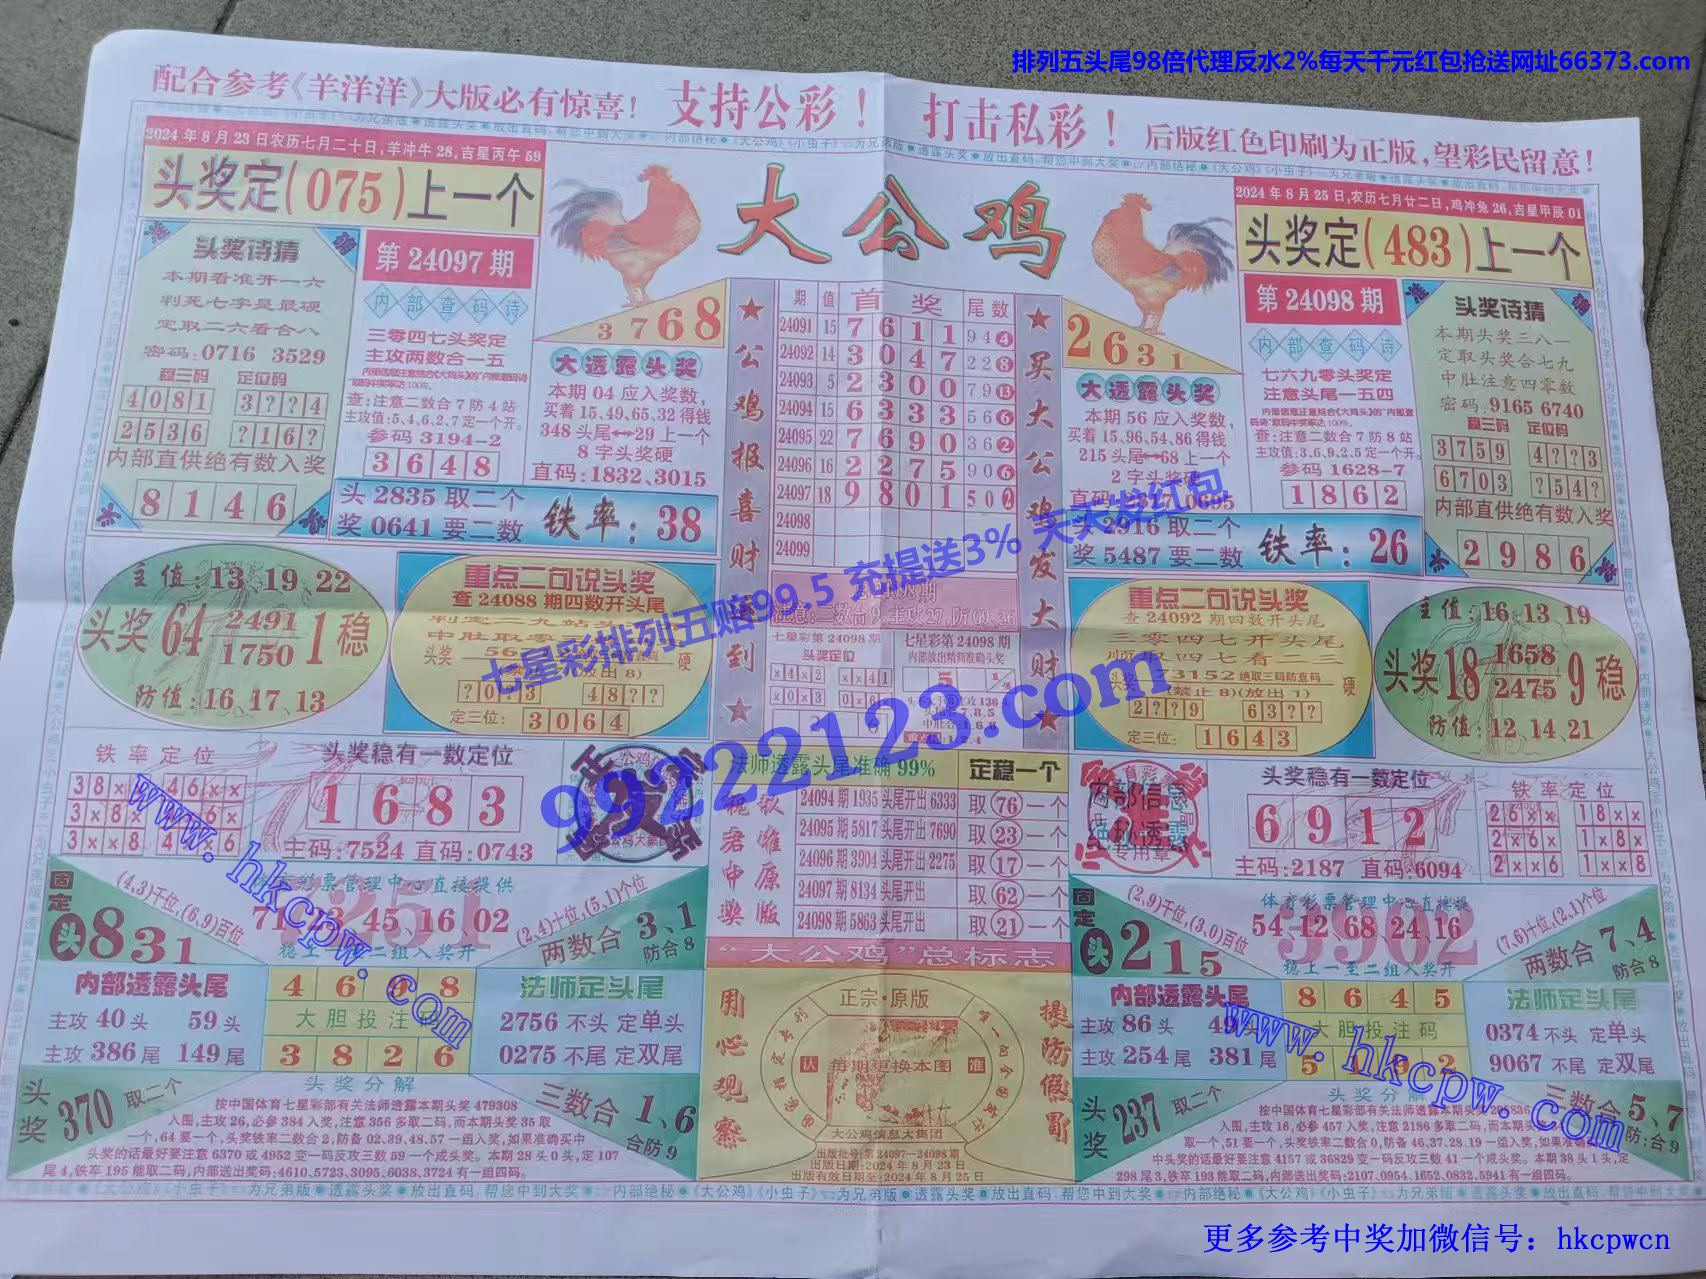 排列五头尾98倍代理反水2%每天千元红包抢送网址66373.com
配合参考《羊洋洋》大版必有惊喜！ 支持公彩！ 打击私彩！ 后版红色印刷为正版,望彩民留意！
2024年8月23日农历七月二十日,羊冲牛28,吉星丙午59
头奖定(075)上一个
头奖诗猜
本期看准开一六
判死七字是最硬
定取二六看合八
密码:0716 3529
稳三码 定位码
4081 3??4
2536 ?16?
内部直供绝有数入奖
8146
第24097期
内部查码诗
三零四七头奖定
主攻两数合一五
查:注意二数合7防4站
主攻值:5,4,6,2,7定一个开。
参码3194-2
3648
头2835取二个
奖0641要二数
铁率:38
大公鸡
3768
大透露头奖
本期04应入奖数,
买着15,49,65,32得钱
348头尾↔29上一个
8字头奖硬
直码:1832,3015
★公鸡报喜财到★
期 值 首奖 尾数
24091 15 7611 944
24092 14 3047 228
24093 5 2300 7913
24094 15 6333 566
24095 22 7690 362
24096 16 2275 906
24097 18 9801 50
24098
24099
★买大公鸡发大财★
2631
大透露头奖
本期56应入奖数,
买着15,96,54,86得钱
215头尾↔68上一个
2字头奖硬
2024年8月25日,农历七月廿二日,鸡冲兔26,吉星甲辰01
头奖定(483)上一个
第24098期
内部查码诗
七六九零头奖定
注意头尾一五四
查:注意二数合7防8站
主攻值:3,6,9,2,5定一个开。
参码1628-7
1862
头2916取二个
奖5487要二数
铁率:26
头奖诗猜
本期头奖三八一
定取头奖合七九
中肚注意四零数
密码:9165 6740
稳三码 定位码
3759 4??3
6703 ?54?
内部直供绝有数入奖
2986
七星彩排列五赔99.5 充提送3% 天天发红包
99222123.com
主值:13,19,22
头奖64 2491 1750 1稳
防值:16,17,13
重点二句说头奖
查24088期四数开头尾
定三位:3064
七星彩第24098期
头奖定位
七星彩第24098期
重点二句说头奖
查24092期四数开头尾
三零四七开头尾
定三位:1643
主值:16,13,19
头奖18 1658 2475 9稳
防值:12,14,21
铁率定位
38×× 46××
3×8×
3××8
头奖稳有一数定位
1683
主码:7524 直码:0743
法师透露头尾准确99% 定稳一个
24094期1935头尾开出6333 取76一个
24095期5817头尾开出7690 取23一个
24096期3904头尾开出2275 取17一个
24097期8134头尾开出 取62一个
24098期5863头尾开出 取21一个
头奖稳有一数定位
6912
主码:2187 直码:6094
铁率定位
26×× 18××
2×6× 1×8×
2××6 1××8
www.hkcpw.com
固定头831
(4,3)千位,(6,9)百位
彩票管理中心直接提供
71 23 45,16 02
(2,4)十位,(5,1)个位
两数合3、1
防合8
固定头215
(2,9)千位,(3,0)百位
体育彩票管理中心直接提
54-12 68 24,16
稳上一至二组入奖开
(7,6)十位,(2,1)个位
两数合7、4
防合8
内部透露头尾
主攻40头 59头
主攻386尾 149尾
4698
大胆投注码
3826
法师定头尾
2756不头 定单头
0275不尾 定双尾
“大公鸡”总标志
用心观察
正宗·原版
认 每期更换本图 准
大公鸡信息大集团
出版批号:第24097-24098期
出版日期:2024年8月23日
出版有效日期至:2024年8月25日
提防假冒
内部透露头尾
主攻86头 49头
主攻254尾 381尾
8645
大胆投注码
法师定头尾
0374不头 定单头
9067不尾 定双尾
www.hkcpw.com
头奖370取二个
头奖分解
三数合1、6
合防9
按中国体育七星彩部有关法师透露本期头奖479308
入围,主攻26,必参384入奖,注意356多取二码,而本期头奖35取
一个,64要一个,头奖铁率二数合2,防备02,39,48,57一组入奖,如果准确买中
奖的话最好要注意6370或4952变一码反攻三数59一个成头奖。本期28头0头,定107
尾4,铁卒195能取二码,内部送出奖码:4610,5723,3095,6038,3724有一组四码。
头奖237取二个
头奖分解
三数合5、7
防:合9
入围,主攻16,必参457入奖,注意2186多取二码,而本期头奖38
取一个,51要一个,头奖铁率二数合0,防备46,37,28,19一组入奖,如果准确
中头奖的话最好要注意4157或36829变一码反攻三数41一个成头奖。本期38头1头,定
298尾3,铁卒193能取二码,内部送出奖码:2107,0954,1652,0832,5941有一组四码。
更多参考中奖加微信号：hkcpwcn